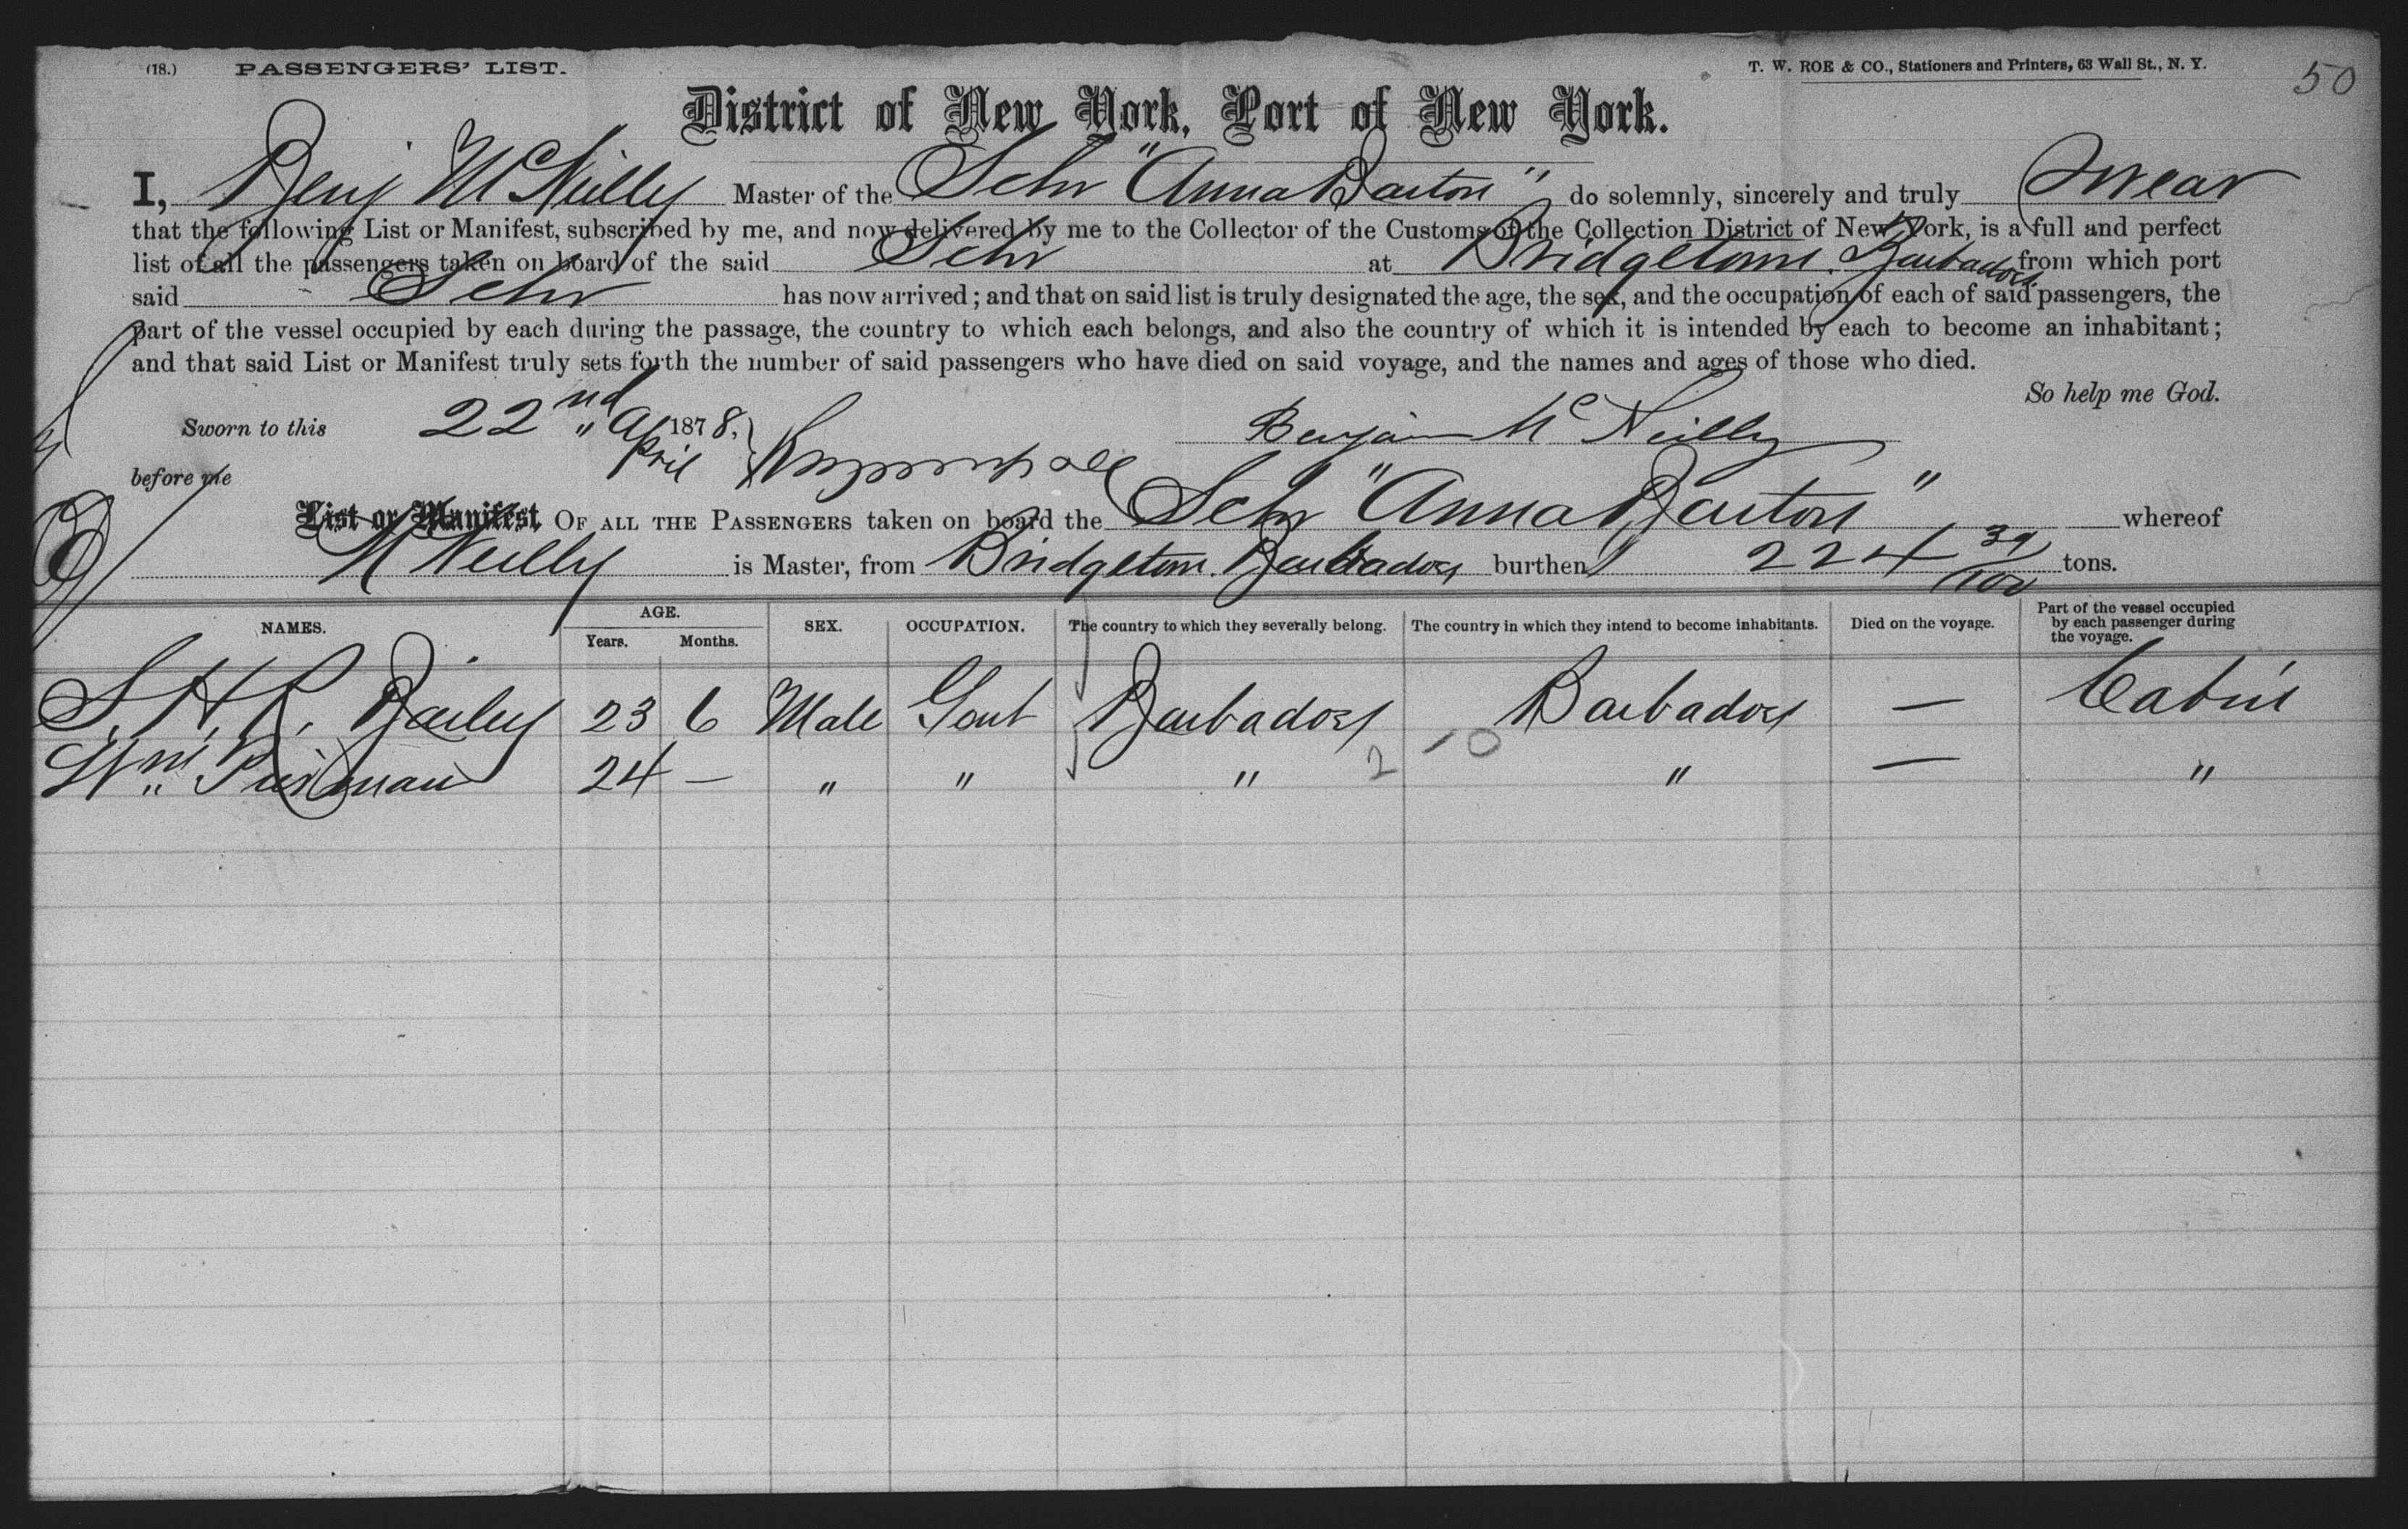 (18.) PASSENGERS' LIST. T. W. ROE & CO., Stationers and Printers, 63 Wall St., N. Y. 50
District of New York, Port of New York.
I, Benj McNeilly Master of the Schr "Anna Barton" do solemnly, sincerely and truly Swear
that the following List or Manifest, subscribed by me, and now delivered by me to the Collector of the Customs of the Collection District of New York, is a full and perfect
list of all the passengers taken on board of the said Schr at Bridgetown. Barbados from which port
said Schr has now arrived; and that on said list is truly designated the age, the sex, and the occupation of each of said passengers, the
part of the vessel occupied by each during the passage, the country to which each belongs, and also the country of which it is intended by each to become an inhabitant;
and that said List or Manifest truly sets forth the number of said passengers who have died on said voyage, and the names and ages of those who died.
So help me God.
Sworn to this 22nd April 1878, Benjamin McNeilly
before me
List or Manifest OF ALL THE PASSENGERS taken on board the Schr "Anna Barton" whereof
McNeilly is Master, from Bridgetown. Barbados burthen 224 39/100 tons.
NAMES. AGE. Years. Months. SEX. OCCUPATION. The country to which they severally belong. The country in which they intend to become inhabitants. Died on the voyage. Part of the vessel occupied by each passenger during the voyage.
S. H. R. Bailey 23 6 Male Gent Barbados Barbados — Cabin
Wm 24 — " " " 2 10 " — "